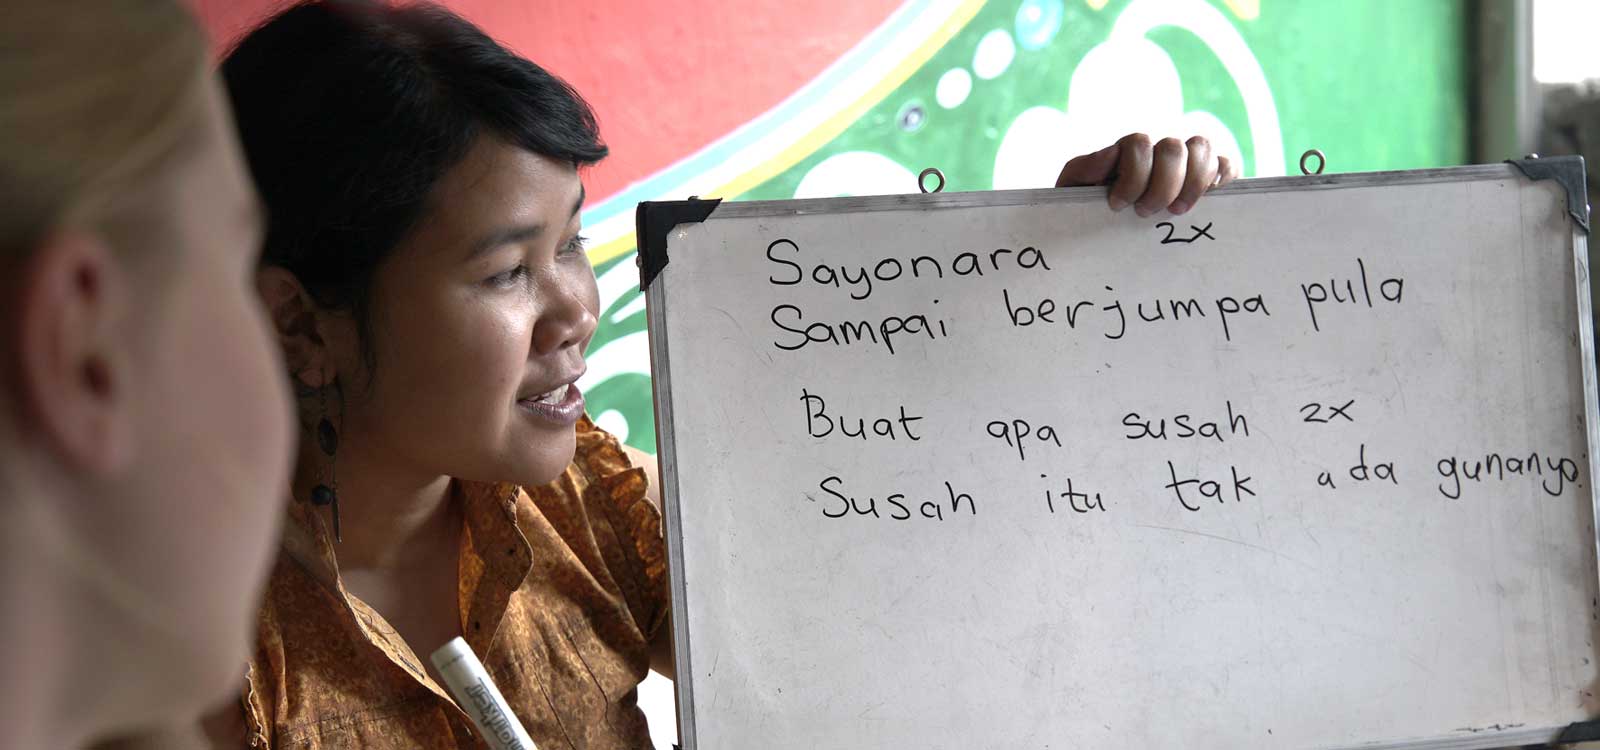 Sayonara 2x
Sampai berjumpa pula
Buat apa susah 2x
Susah itu tak ada gunanya.